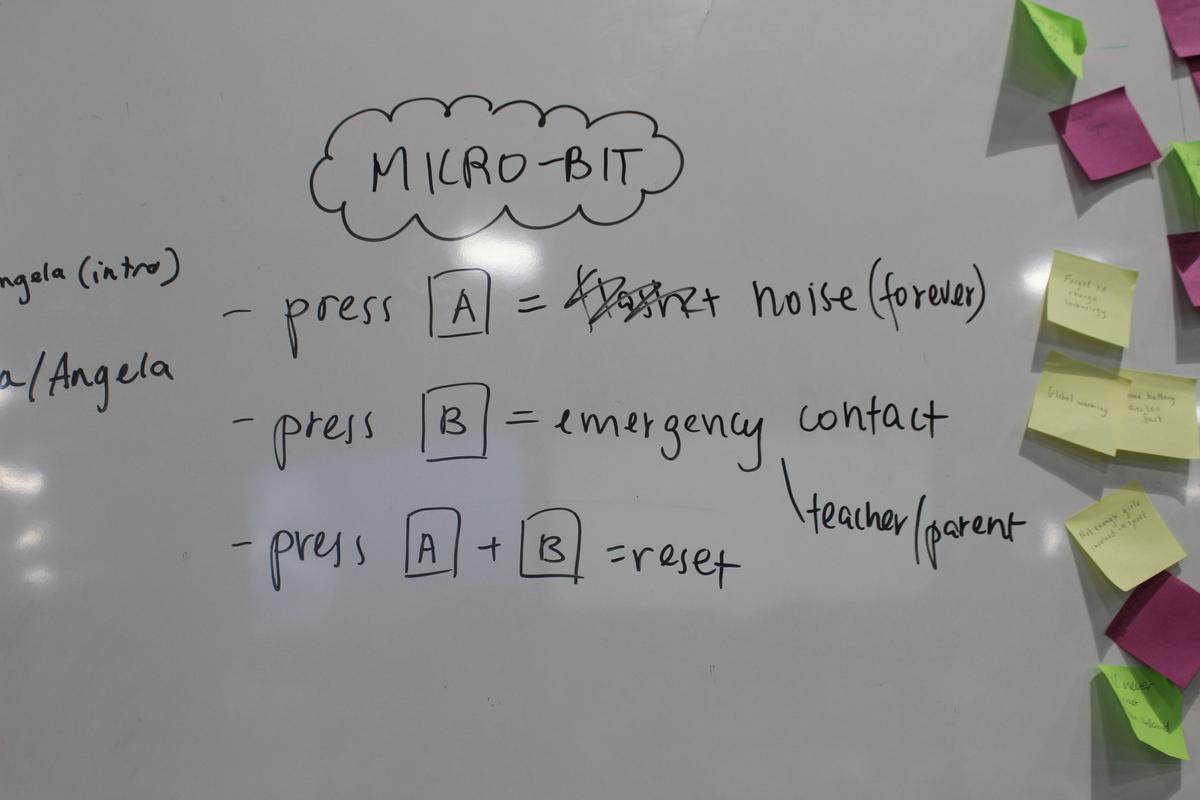 MICRO-BIT
ngela (intro)
a/Angela
- press A = noise (forever)
- press B = emergency contact
\teacher/parent
- press A + B = reset
Forget to
charge
technology
Global warming
battery
dies too
fast
Not enough girls
involved in sport